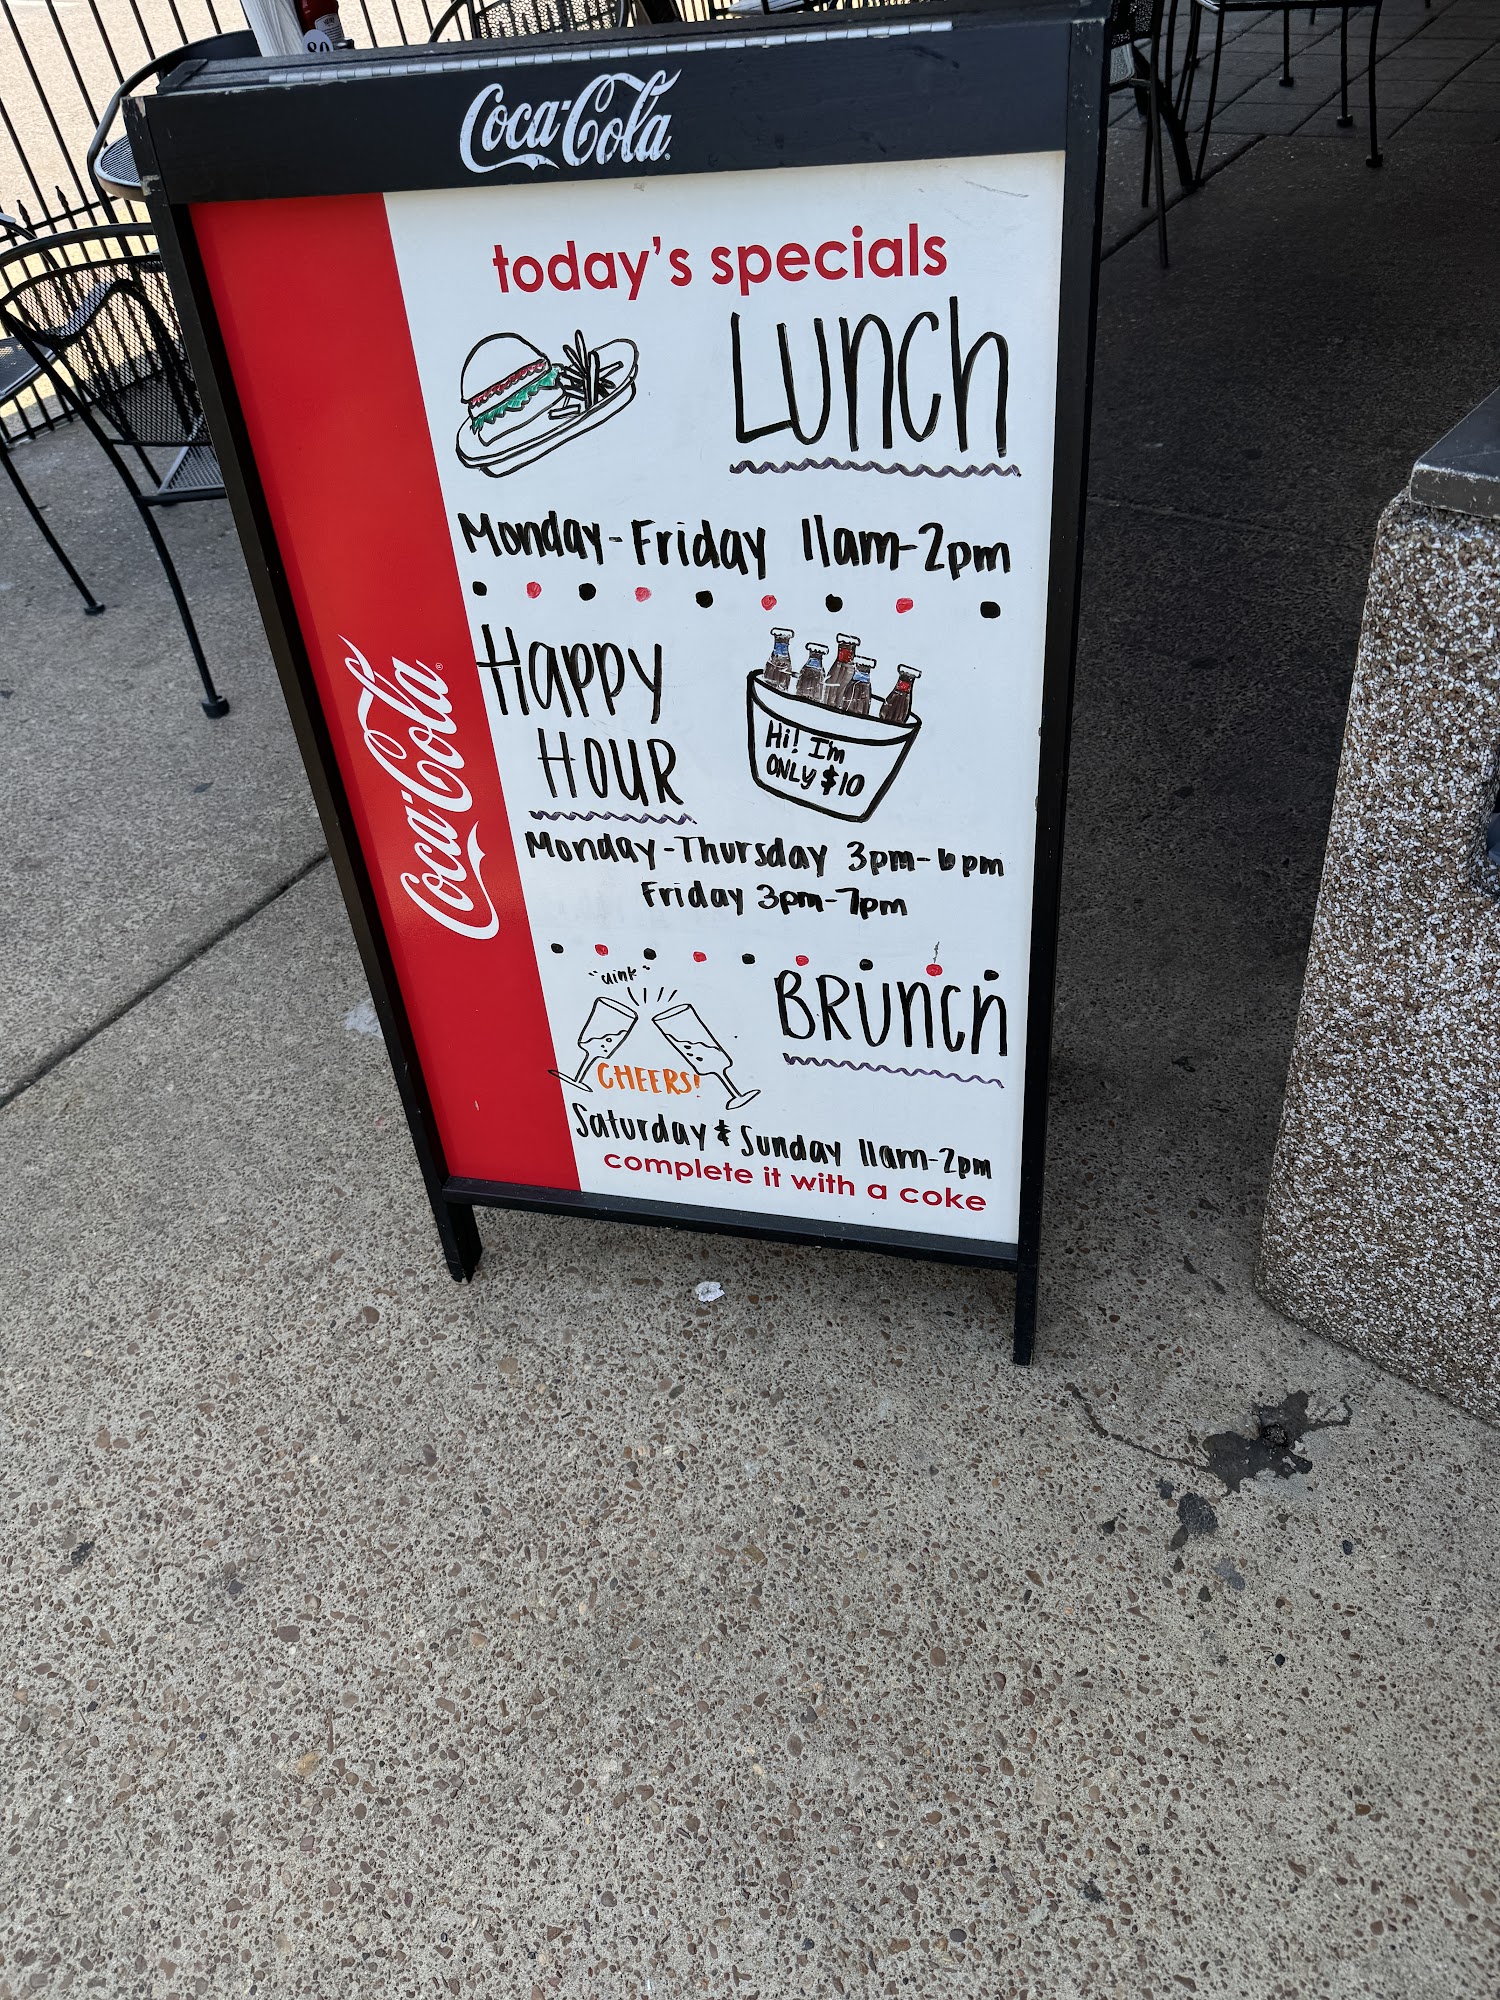 Coca-Cola
today's specials
LUNCh
Monday-Friday 11am-2pm
HAPPY
HOUR
Hi! I'm
ONLY $10
Monday-Thursday 3pm-6pm
Friday 3pm-7pm
Coca-Cola
"clink"
BRUNCh
CHEERS!
Saturday & Sunday 11am-2pm
complete it with a coke